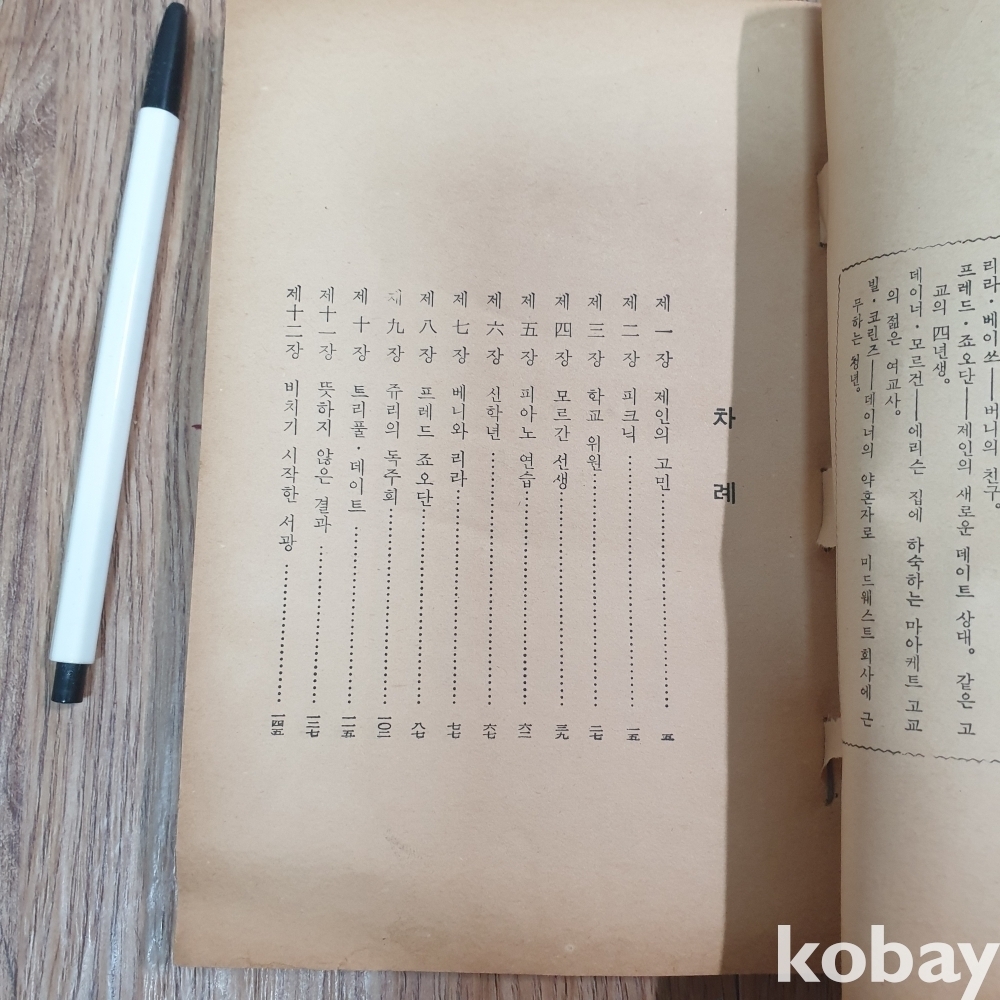 리라·베이쏘——버니의 친구。
프레드·죠오단——제인의 새로운 데이트 상대。 같은 고
교의 四년생。
데이너·모르건——에리슨 집에 하숙하는 마아케트 고교
의 젊은 여교사。
빌·코린즈——데이너의 약혼자로 미드웨스트 회사에 근
무하는 청년。
차례
제一장 제인의 고민……………………五
제二장 피크닉……………………一五
제三장 학교 위원……………………二七
제四장 모르간 선생……………………三九
제五장 피아노 연습……………………六二
제六장 신학년……………………六七
제七장 베니와 리라……………………七七
제八장 프레드 죠오단……………………八七
제九장 쥬리의 독주회……………………一〇二
제十장 트리풀·데이트……………………一一五
제十一장 뜻하지 않은 결과……………………一二七
제十二장 비치기 시작한 서광……………………一四五
kobay